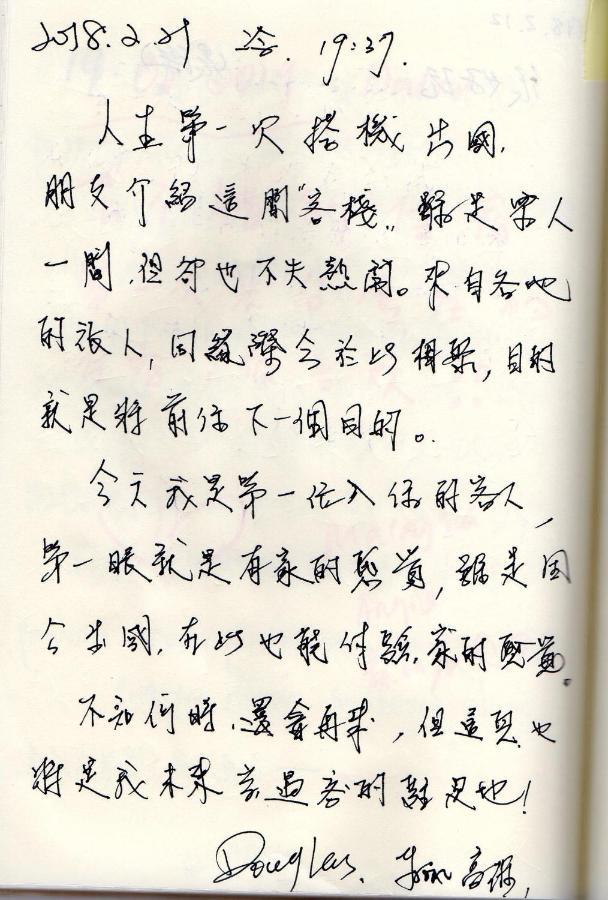 2018.2.21 冷. 19:37.
人生第一次搭機出國,
朋友介紹這間"客棧",雖是眾人
一間,但卻也不失熱鬧。來自各地
的旅人,因緣際會於此相聚,目的
就是將前往下一個目的。
今天我是第一位入住的客人,
第一眼就是有家的感覺,雖是因
公出國,在此也能体驗家的感覺。
不知何時,還會再來,但這見也
將是我未來 過客的駐足地!
Douglas. 高雄,